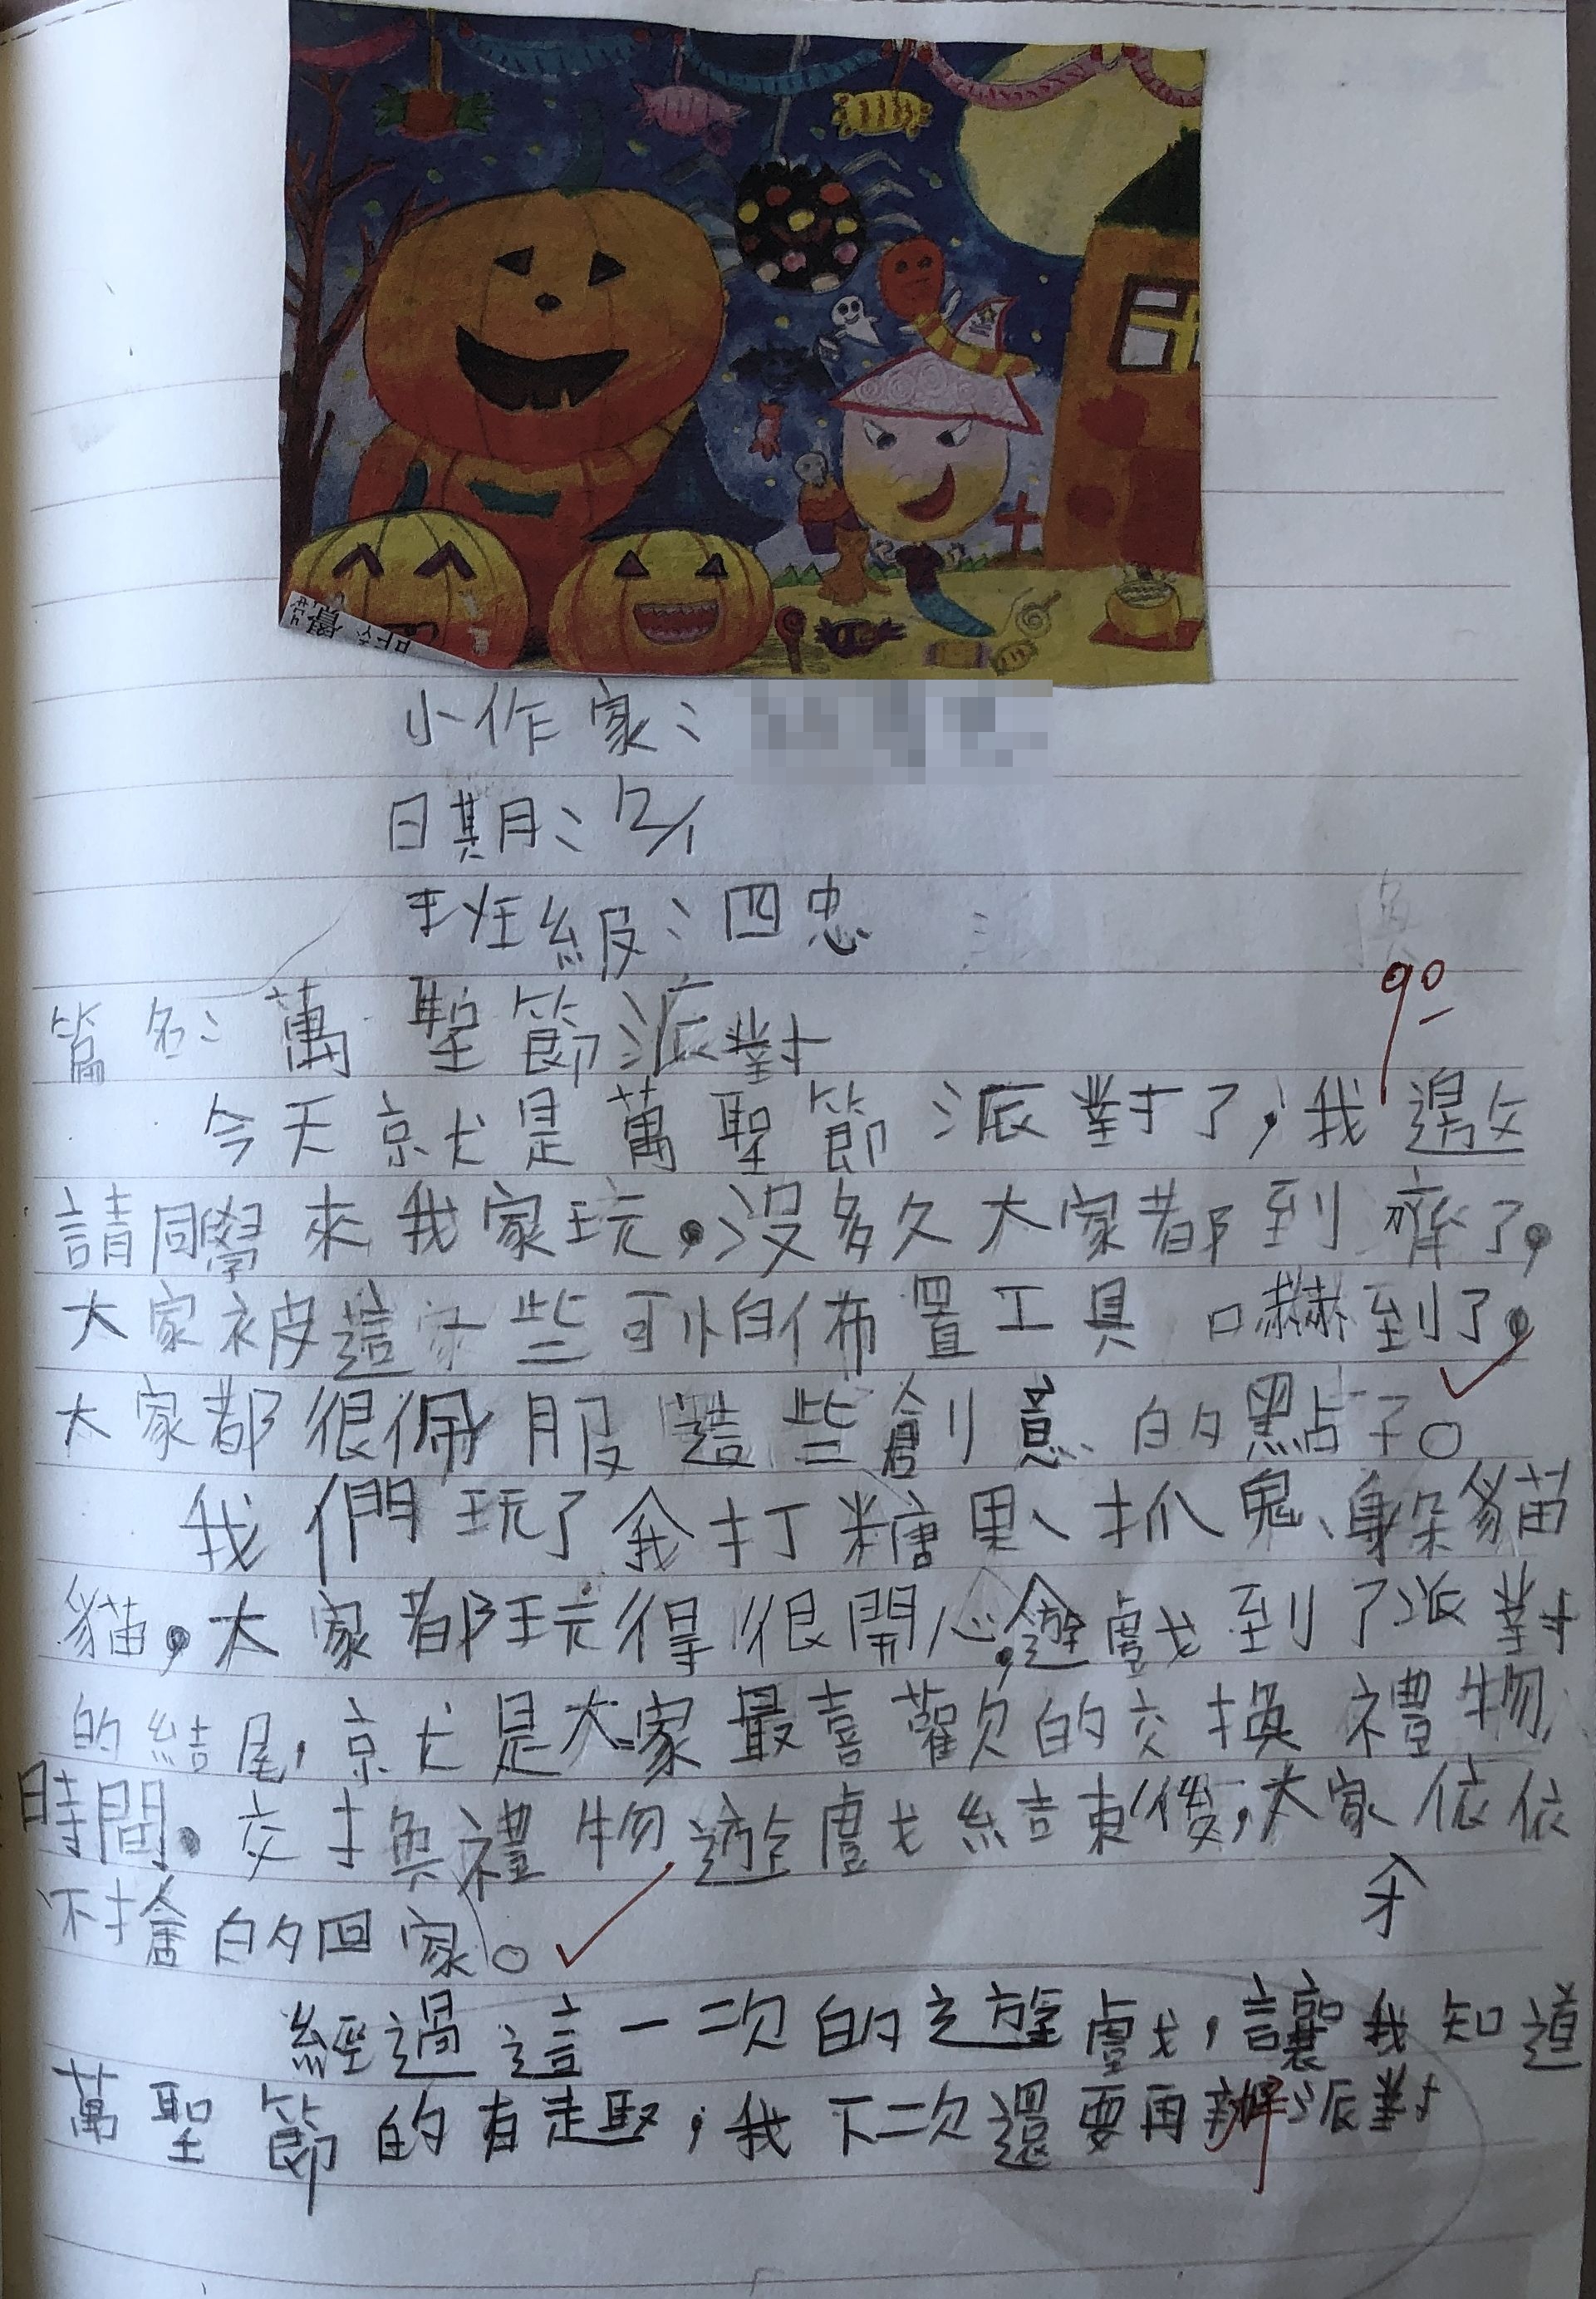 小作家：
日期：12/1
班級：四忠
90
篇名：萬聖節派對
今天就是萬聖節派對了，我邀
請同學來我家玩，沒多久大家都到齊了，
大家被這些可怕佈置工具嚇到了，
大家都很佩服這些創意的點子。
我們玩了打糖果、抓鬼、躲貓
貓，大家都玩得很開心，遊戲到了派對
的結尾，就是大家最喜歡的交換禮物
時間。交換禮物遊戲結束後，大家依依
不捨的回家。
經過這一次的遊戲，讓我知道
萬聖節的有趣，我下次還要再辦派對